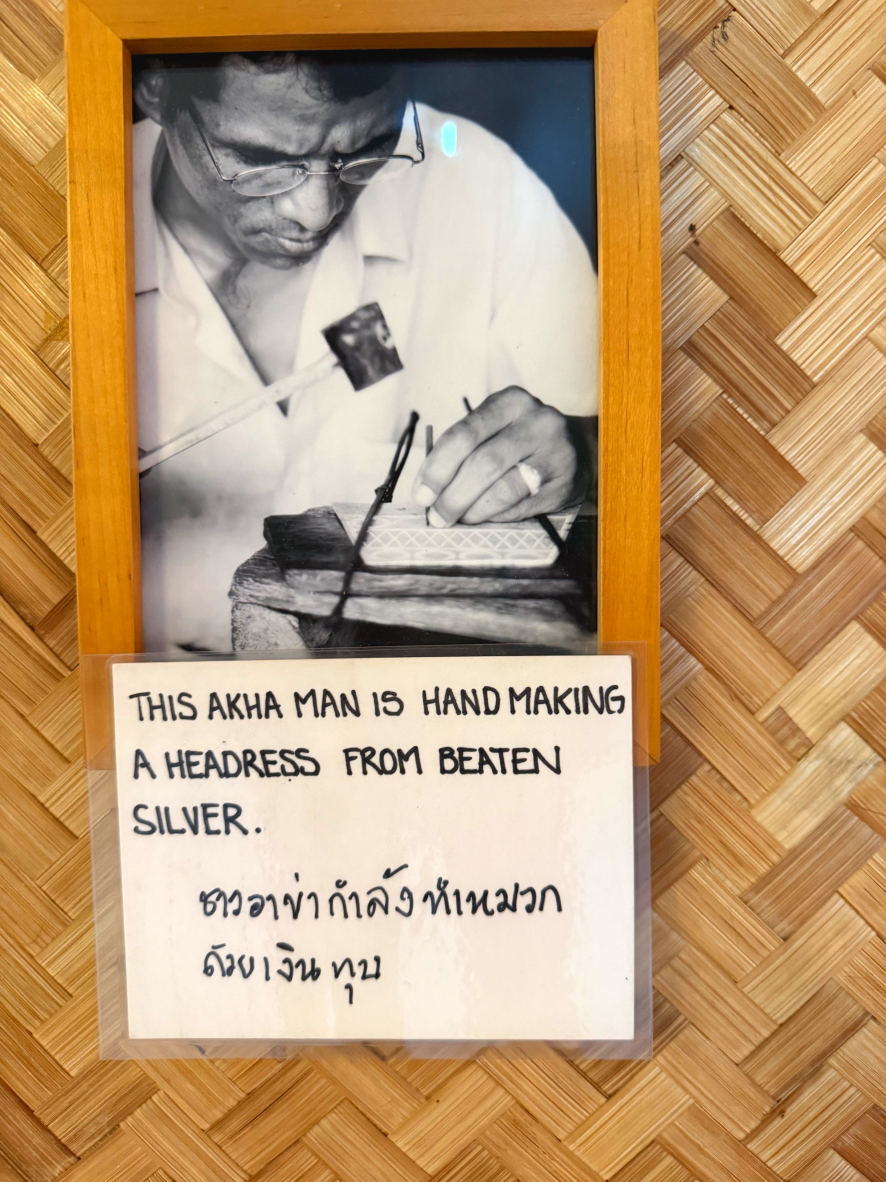 THIS AKHA MAN IS HAND MAKING
A HEADRESS FROM BEATEN
SILVER.
ชาวอาข่ากำลังทำหมวก
ด้วยเงินทุบ